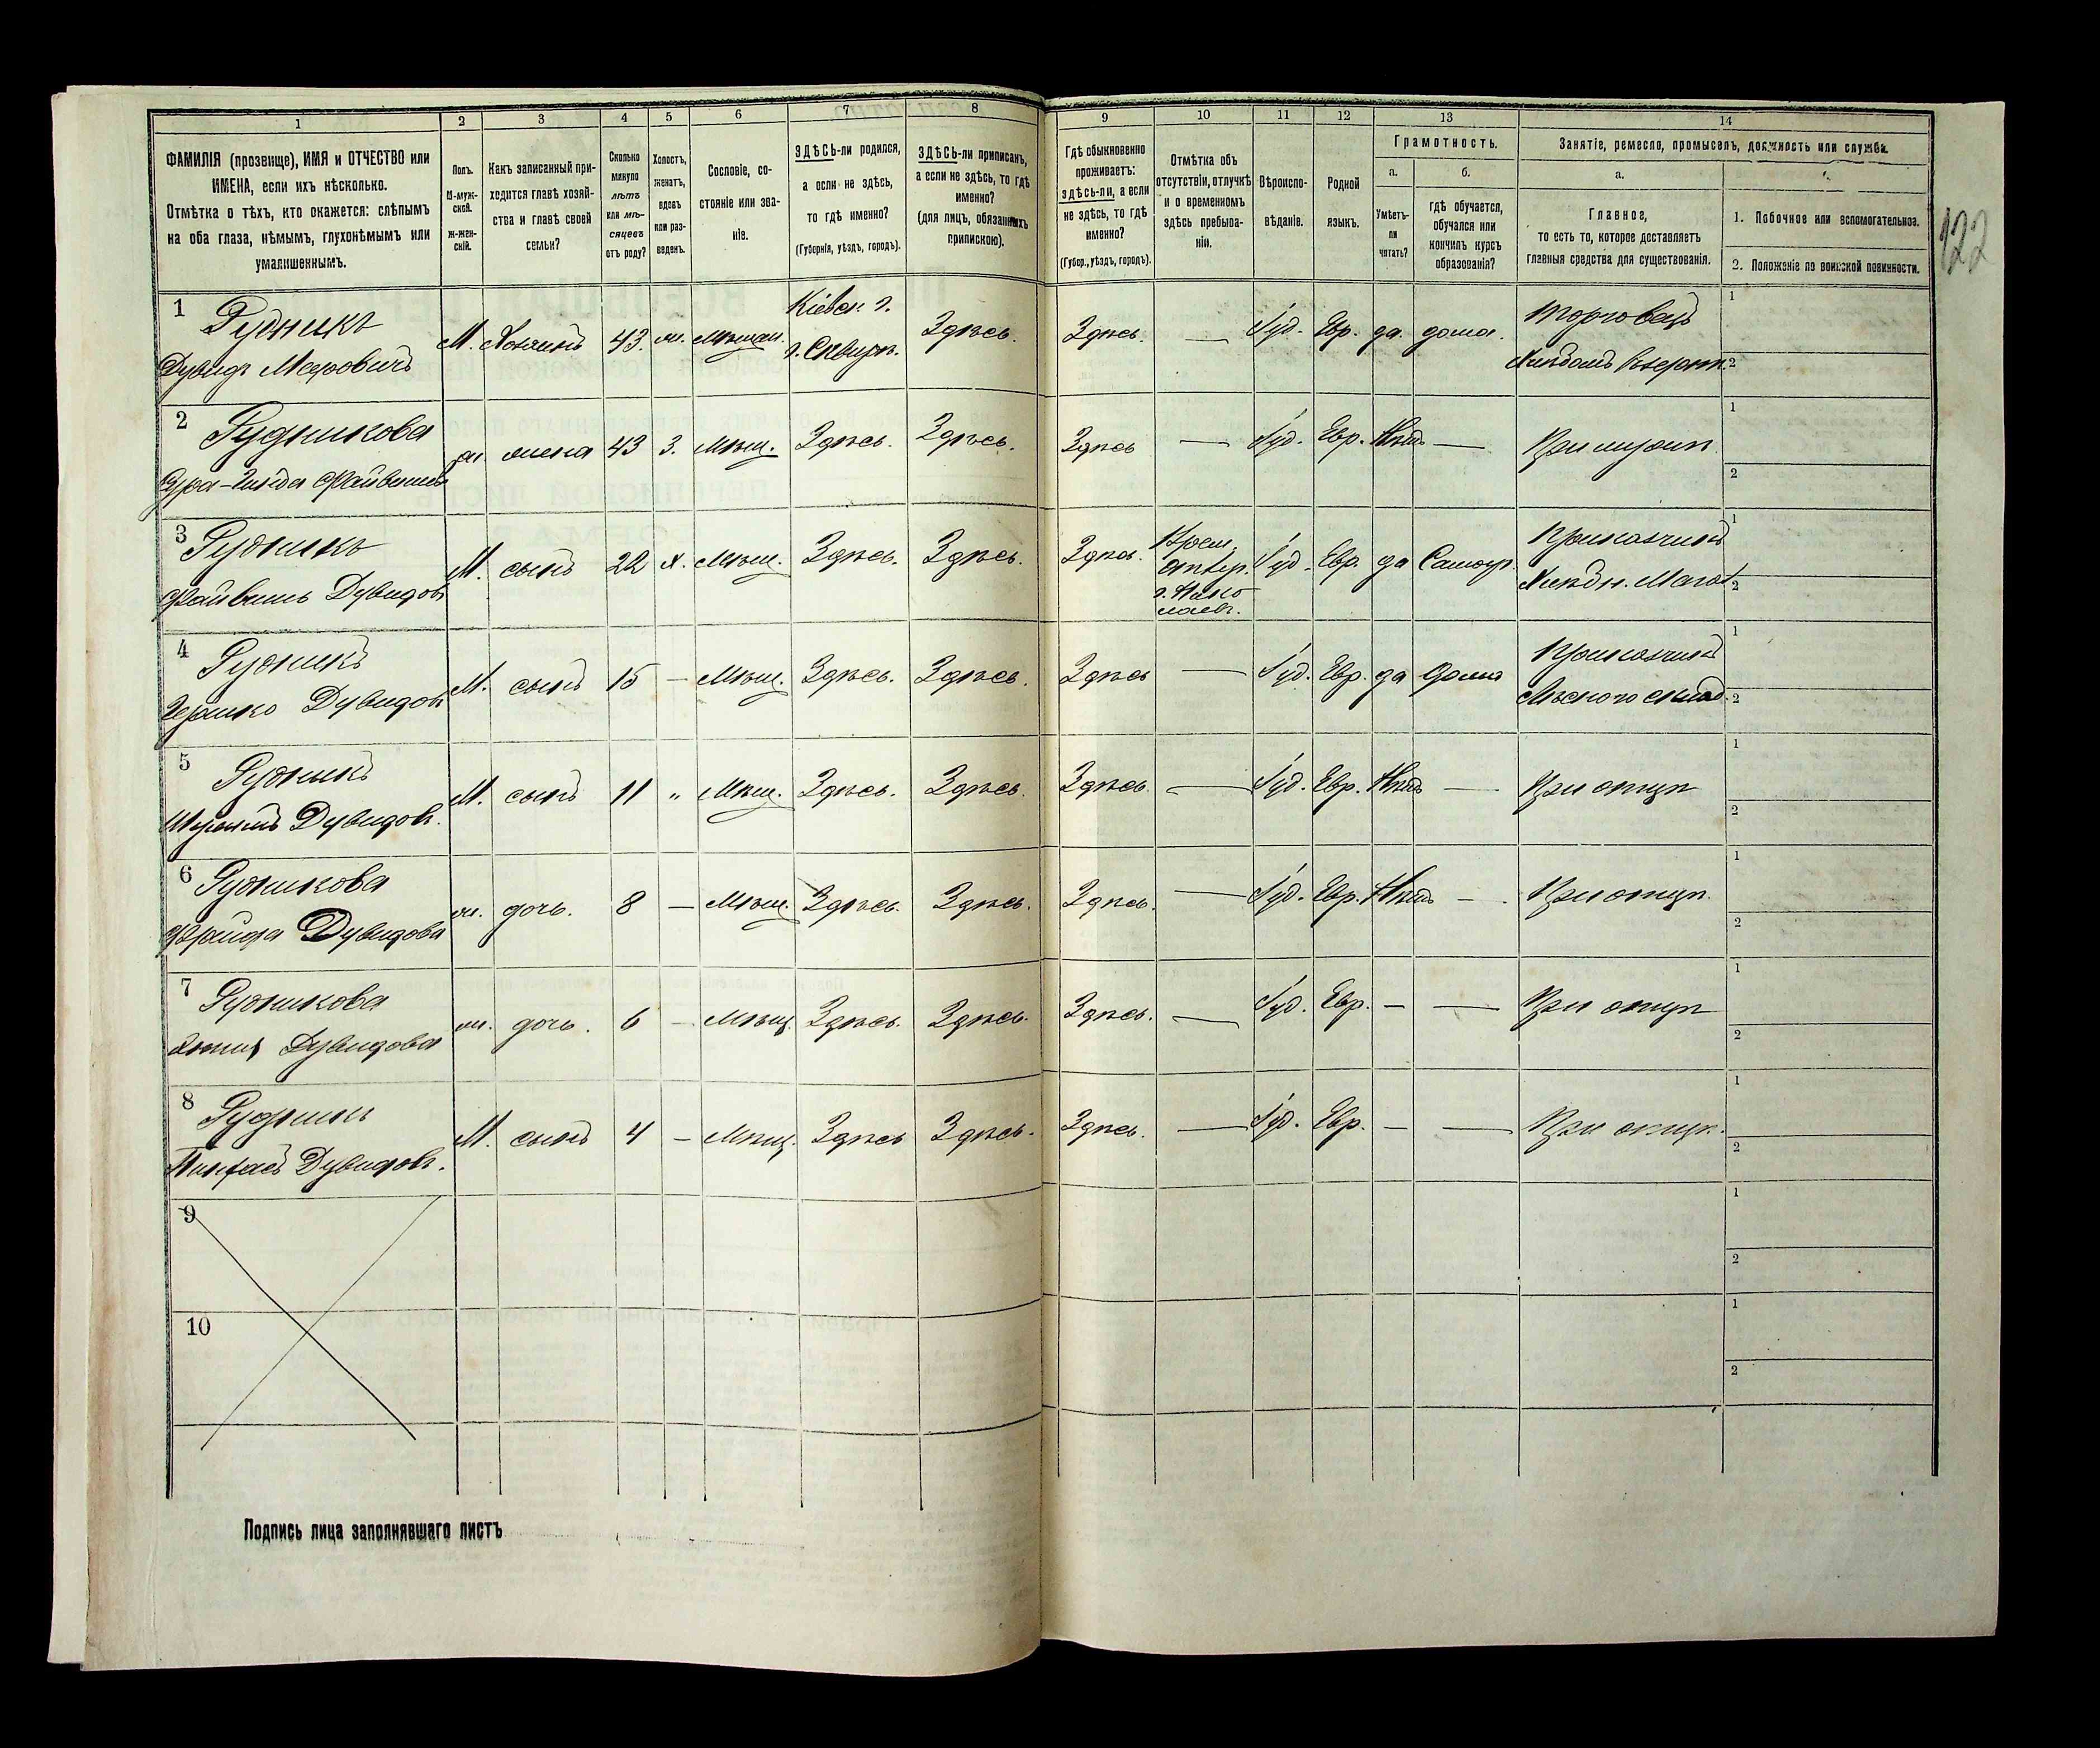 1 2 3 4 5 6 7 8 9 10 11 12 13 14
ФАМИЛІЯ (прозвище), ИМЯ и ОТЧЕСТВО или
ИМЕНА, если ихъ нѣсколько.
Отмѣтка о тѣхъ, кто окажется: слѣпымъ
на оба глаза, нѣмымъ, глухонѣмымъ или
умалишеннымъ.
Полъ.
М-муж-
ской.
Ж-жен-
скій.
Какъ записанный при-
ходится главѣ хозяй-
ства и главѣ своей
семьи?
Сколько
минуло
лѣтъ
или мѣ-
сяцевъ
отъ роду?
Холостъ,
женатъ,
вдовъ
или раз-
веденъ.
Сословіе, со-
стояніе или зва-
ніе.
ЗДѢСЬ-ли родился,
а если не здѣсь,
то гдѣ именно?
(Губернія, уѣздъ, городъ).
ЗДѢСЬ-ли приписанъ,
а если не здѣсь, то гдѣ
именно?
(для лицъ, обязанныхъ
припискою).
Гдѣ обыкновенно
проживаетъ:
здѣсь-ли, а если
не здѣсь, то гдѣ
именно?
(Губер., уѣздъ, городъ).
Отмѣтка объ
отсутствіи, отлучкѣ
и о временномъ
здѣсь пребыва-
ніи.
Вѣроиспо-
вѣданіе.
Родной
языкъ.
Грамотность.
а.
Умѣетъ-
ли
читать?
б.
гдѣ обучается,
обучался или
кончилъ курсъ
образованія?
Занятіе, ремесло, промыселъ, должность или служба.
а.
Главное,
то есть то, которое доставляетъ
главныя средства для существованія.
1. Побочное или вспомогательное.
2. Положеніе по воинской повинности.
122
1 Рудникъ
Дувидъ Меэровичъ
М. Хозяинъ 43. ж. Мѣщан. Кіевск. г.
г. Сквирѣ. Здѣсь. Здѣсь. — Іуд. Евр. да дома. Торговецъ
1
2
2 Рудникова
Файвишев
ж. жена 43 З. Мѣщ. Здѣсь. Здѣсь. Здѣсь — Іуд. Евр. Нѣтъ — При мужѣ
1
2
3 Рудникъ
Файвишь Дувидов
М. сынъ 22 х. Мѣщ. Здѣсь. Здѣсь. Здѣсь. Врем.
г. Нико
лаевъ.
Іуд. Евр. да Самоуч. Прикащикъ
Хлѣбн. Магаз.
1
2
4 Рудникъ
Гершко Дувидов
М. сынъ 15 — Мѣщ. Здѣсь. Здѣсь. Здѣсь — Іуд. Евр. да Дома Прикащикъ
Лѣсного склад.
1
2
5 Рудникъ
Дувидов.
М. сынъ 11 „ Мѣщ. Здѣсь. Здѣсь. Здѣсь. — Іуд. Евр. Нѣтъ — При отцѣ
1
2
6 Рудникова
Фрейда Дувидова
ж. дочь. 8 — Мѣщ. Здѣсь. Здѣсь. Здѣсь. — Іуд. Евр. Нѣтъ — При отцѣ.
1
2
7 Рудникова
Дувидова
ж. дочь. 6 — Мѣщ. Здѣсь. Здѣсь. Здѣсь. — Іуд. Евр. — — При отцѣ
1
2
8 Рудникъ
Пинхасъ Дувидов.
М. сынъ 4 — Мѣщ. Здѣсь Здѣсь. Здѣсь. — Іуд. Евр. — — При отцѣ.
1
2
9
1
2
10
1
2
Подпись лица заполнявшаго листъ